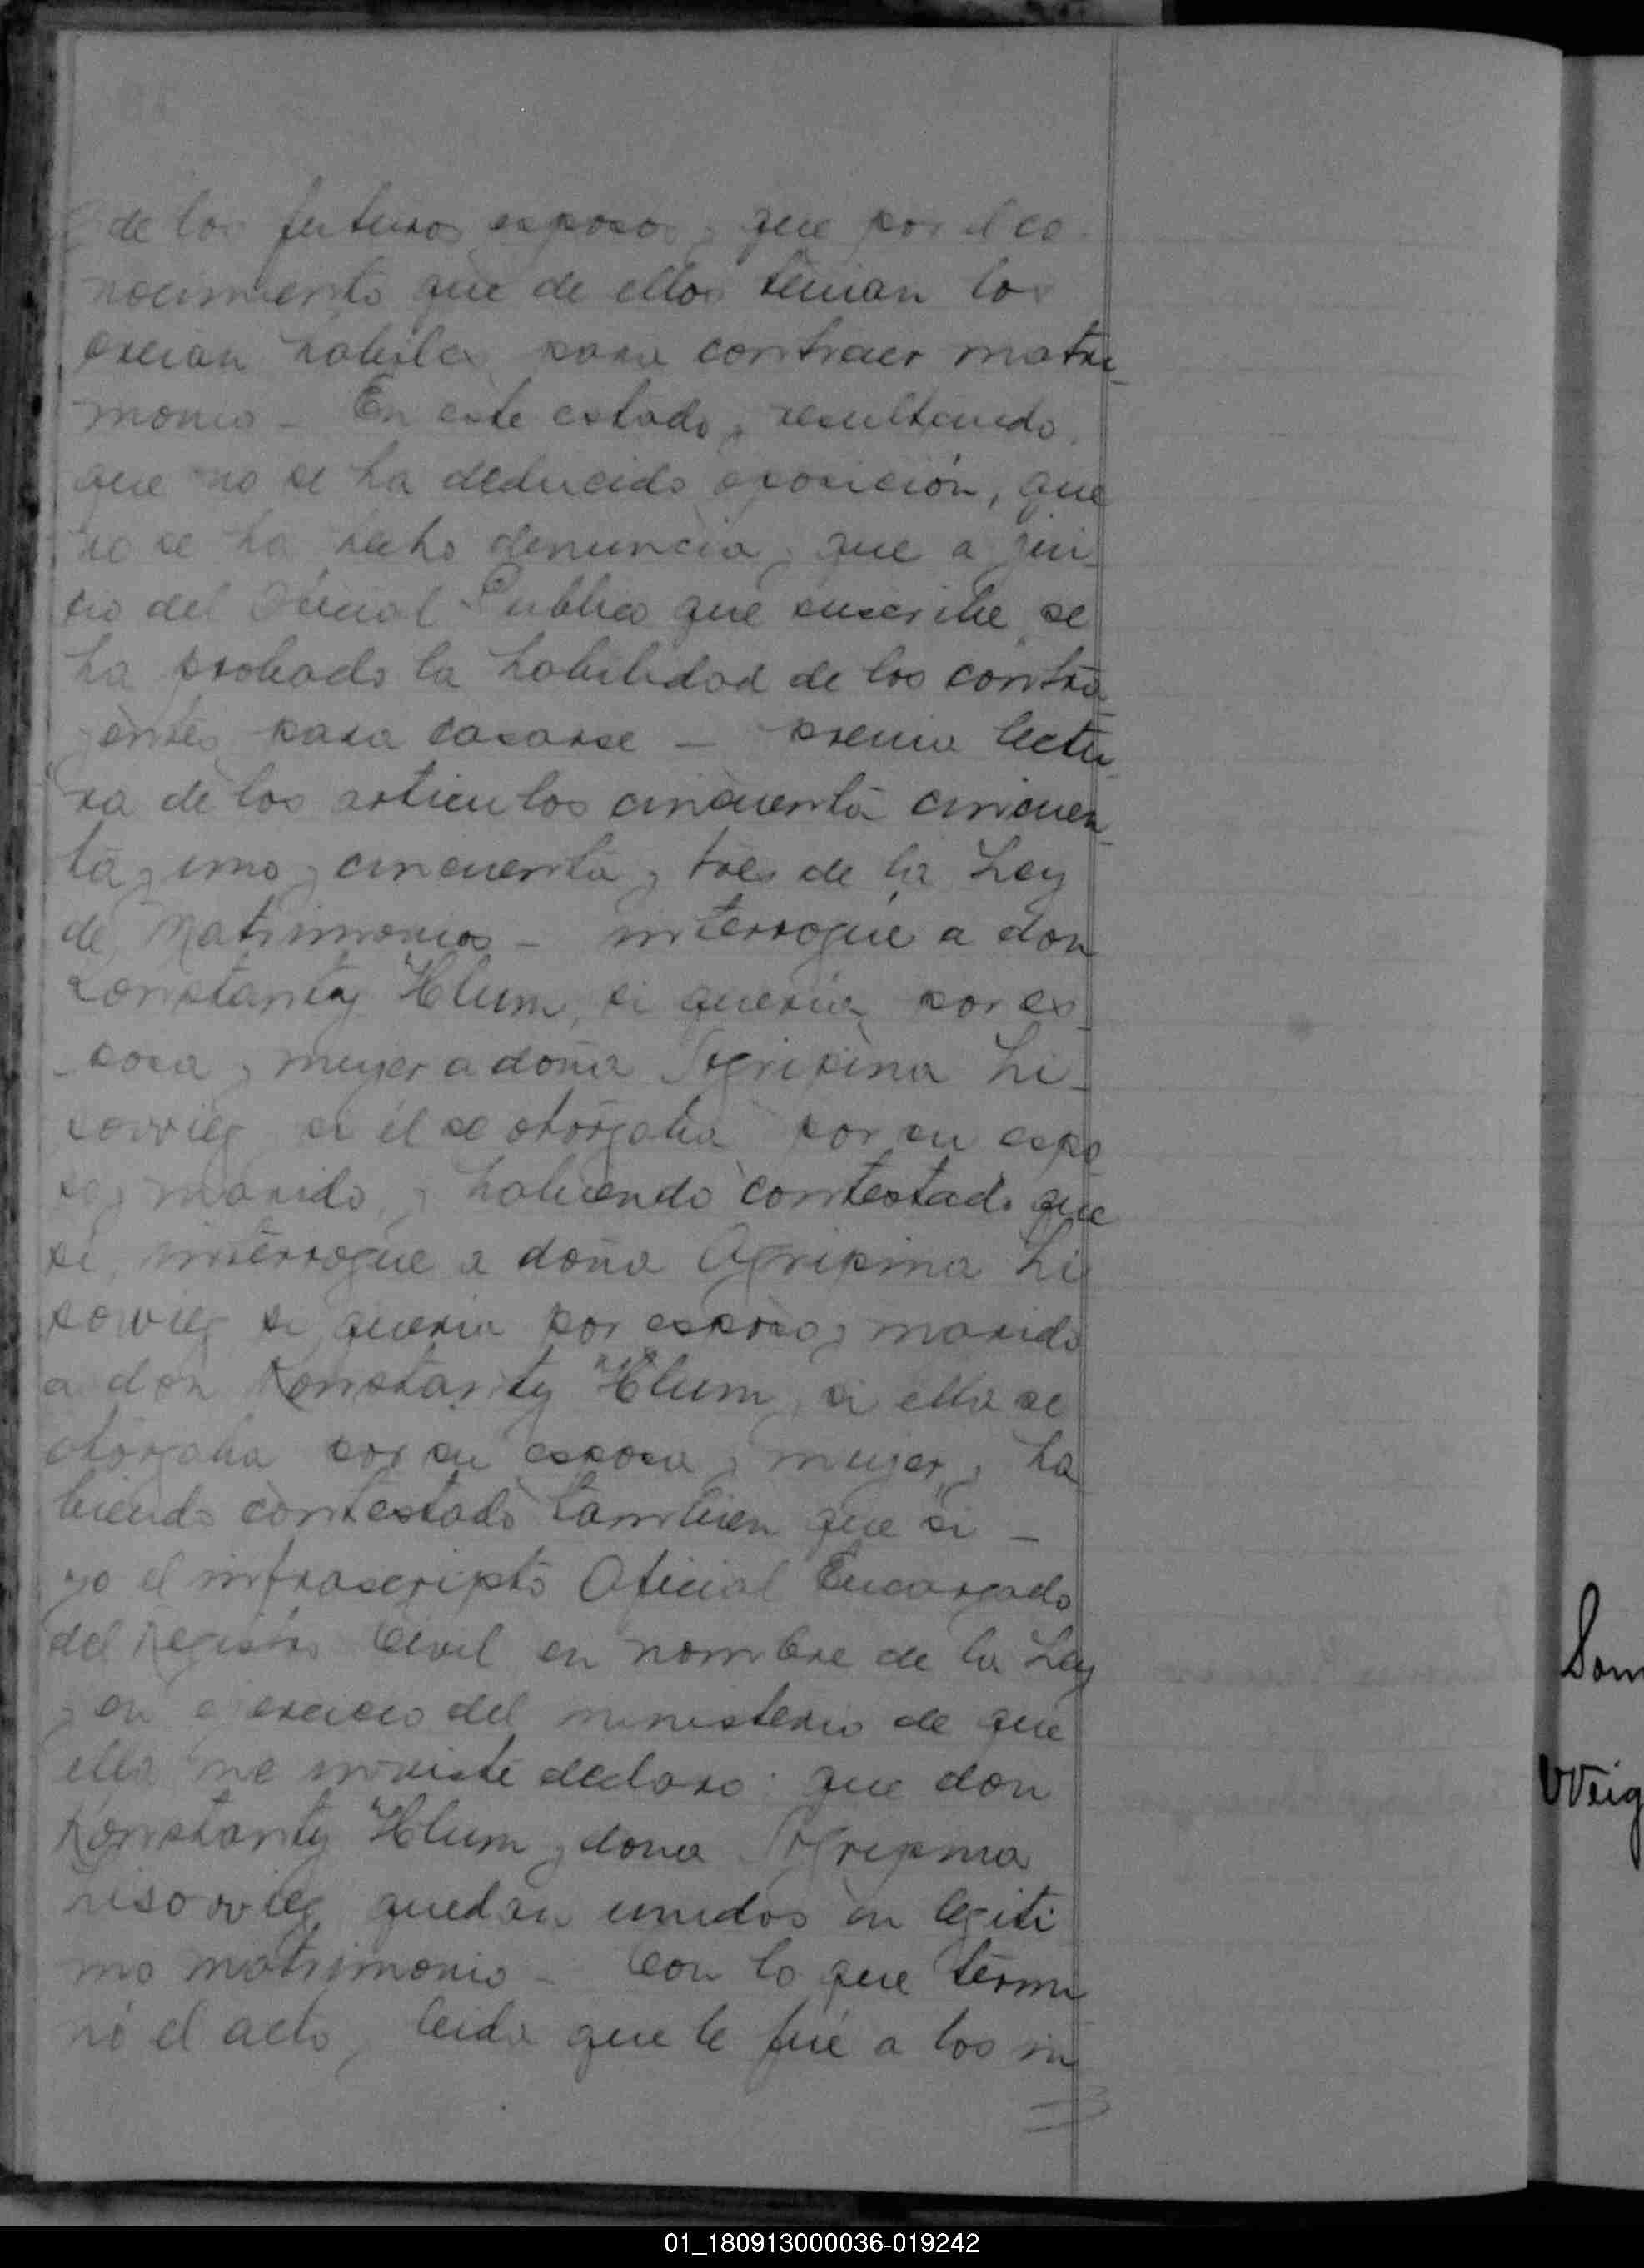 de los futuros esposos y que por el co-
nocimiento que de ellos tenian los
creian habiles para contraer matri-
monio - En este estado, resultando
que no se ha deducido oposición, que
no se ha hecho denuncia y que a jui-
cio del Oficial Publico que suscribe se
ha probado la habilidad de los contra-
yentes para casarse - previa lectu-
ra de los articulos cincuenta cincuen-
ta y uno y cincuenta y tres de la Ley
de Matrimonios - interrogué a don
Konstanty Hlum, si queria por es-
posa y mujer a doña Agripina Li-
sowiey si él se otorgaba por su espo-
so y marido, y habiendo contestado que
si, interrogue a doña Agripina Li
sowiey si queria por esposo y marido
a don Konstanty Hlum, si ella se
otorgaba por su esposa y mujer y ha
biendo contestado tambien que si -
yo el infrascripto Oficial Encargado
del Registro Civil en nombre de la Ley
y en ejercicio del ministerio de que
ella me inviste declaro: que don
Konstanty Hlum y dona Agripina
Lisowiey quedan unidos en legiti
mo matrimonio - Con lo que termi
nó el acto, leida que le fué a los in
Som
Weig
01_180913000036-019242